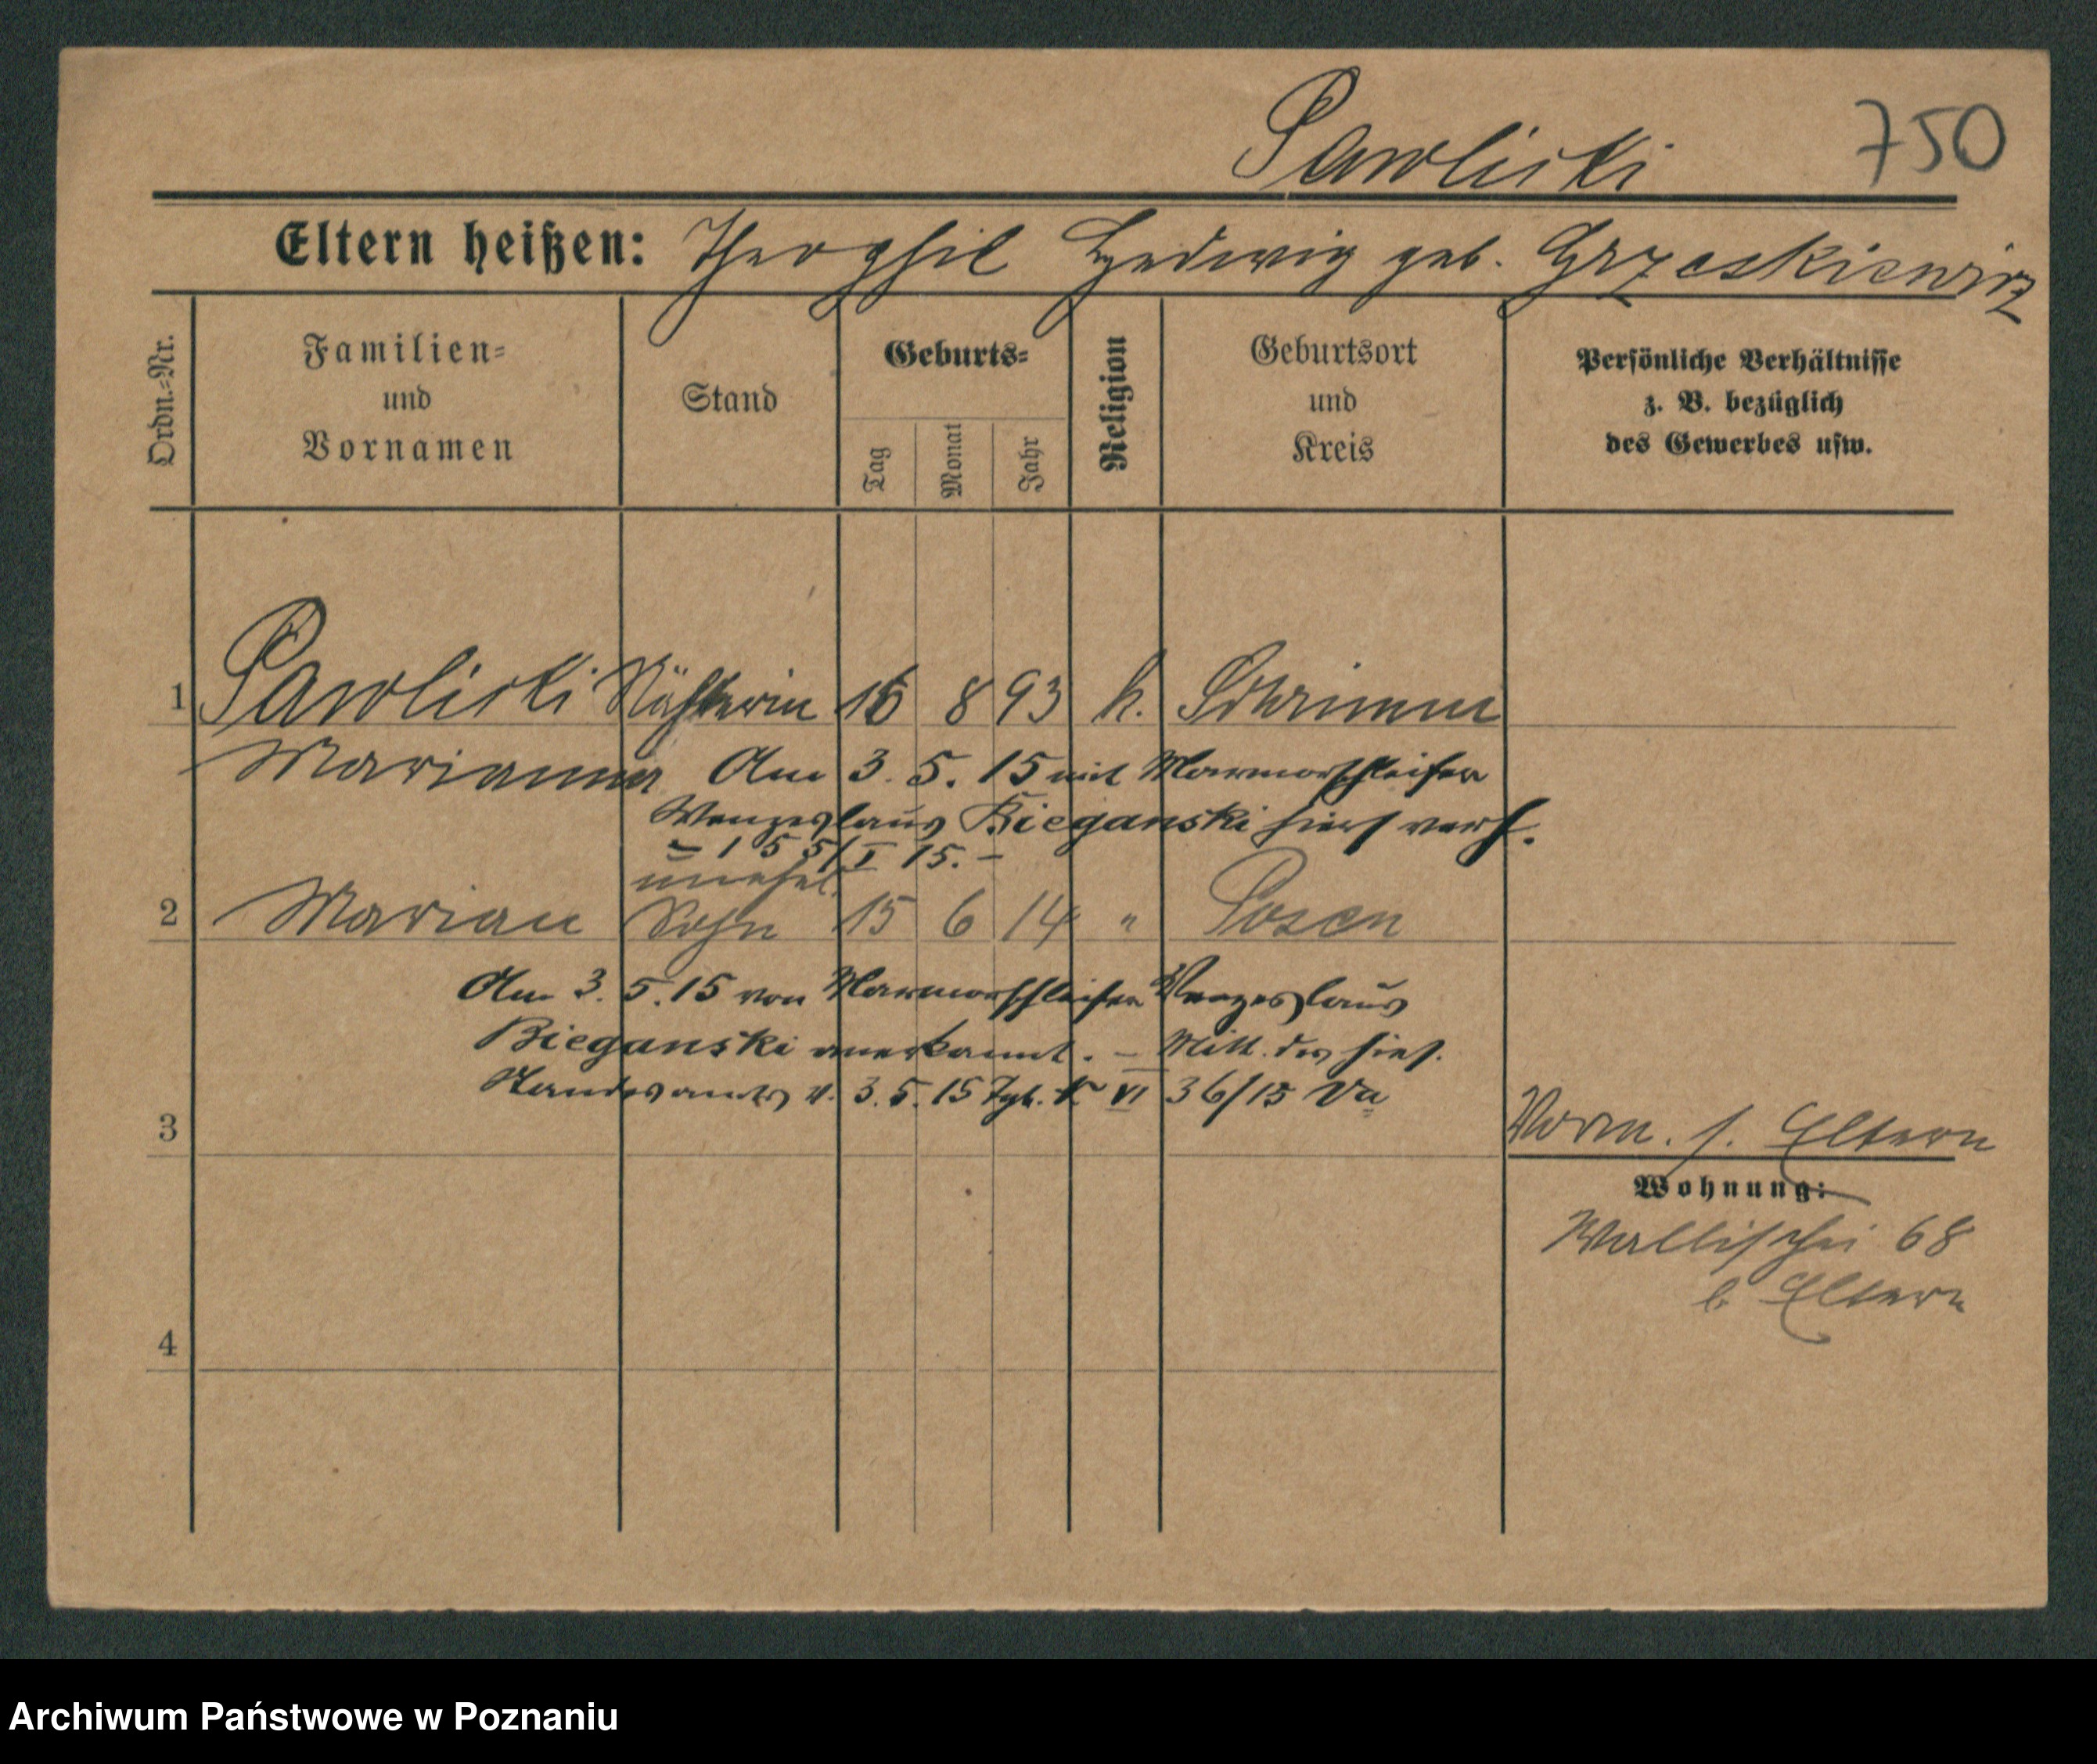 Pawlicki 750
Eltern heißen: Theophil Hedwig geb. Grzeskiewicz
Ordn.-Nr.
Familien-
und
Vornamen
Stand
Geburts-
Tag
Monat
Jahr
Religion
Geburtsort
und
Kreis
Persönliche Verhältnisse
z. B. bezüglich
des Gewerbes usw.
1 Pawlicki Näherin 16 8 93 k. Schrimm
Marianna Am 3. 5. 15 mit Marmorschleifer
Wenzeslaus Bieganski hier verh.
– 155/I 15. –
unehel.
2 Marian Sohn 15 6 14 " Posen
Am 3. 5. 15 von Marmorschleifer Wenzeslaus
Bieganski anerkannt. – Mitt. des hies.
Standesamts v. 3. 5. 15 Tgb. VI 36/15
3
Vorm. s. Eltern
Wohnung:
Wallischei 68
b. Eltern
4
Archiwum Państwowe w Poznaniu